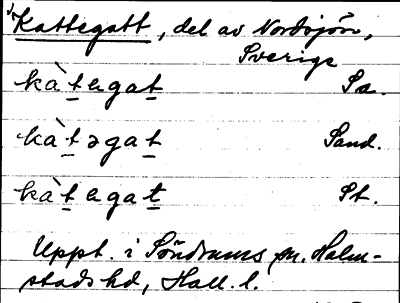 Kattegatt, del av Nordsjön,
Sverige
kàtegat Sa.
kàtəgat Sand.
kàtegat St.
Uppt. i Söndrums sn. Halm-
stads hd, Hall. l.